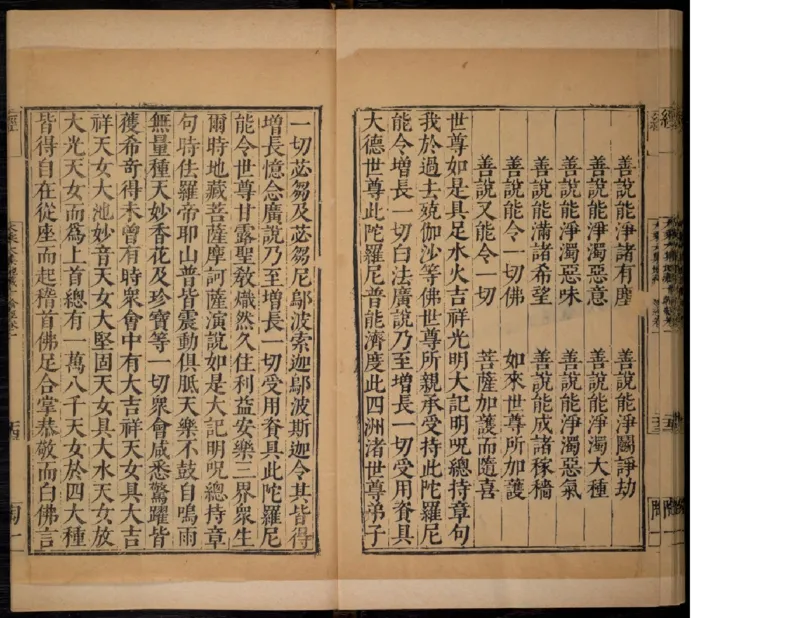 善說能淨諸有塵 善說能淨鬭諍劫
善說能淨濁惡意 善說能淨濁大種
善說能淨濁惡味 善說能淨濁惡氣
善說能滿諸希望 善說能成諸稼穡
善說能令一切佛 如來世尊所加護
善說又能令一切 菩薩加護而隨喜
世尊如是具足水火吉祥光明大記明呪總持章句
我於過去殑伽沙等佛世尊所親承受持此陀羅尼
能令增長一切白法廣說乃至增長一切受用資具
大德世尊此陀羅尼普能濟度此四洲渚世尊弟子
一切苾芻及苾芻尼鄔波索迦鄔波斯迦令其皆得
增長憶念廣說乃至增長一切受用資具此陀羅尼
能令世尊甘露聖教熾然久住利益安樂三界衆生
爾時地藏菩薩摩訶薩演說如是大記明呪總持章
句時佉羅帝耶山普皆震動俱胝天樂不鼓自鳴雨
無量種天妙香花及珍寶等一切衆會咸悉驚躍皆
獲希奇得未曾有時衆會中有大吉祥天女具大吉
祥天女大池妙音天女大堅固天女具大水天女放
大光天女而爲上首總有一萬八千天女於四大種
皆得自在從座而起稽首佛足合掌恭敬而白佛言